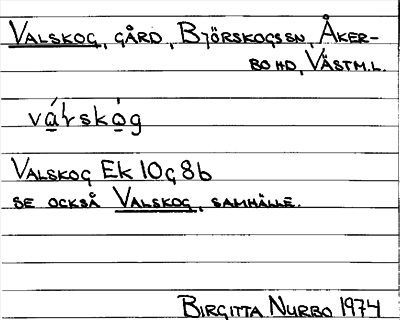 VALSKOG, GÅRD, BJÖRSKOGS SN, ÅKER-
BO HD, VÄSTM.L.
válskòg
VALSKOG Ek 10g 8b
SE OCKSÅ VALSKOG, SAMHÄLLE.
BIRGITTA NURBO 1974